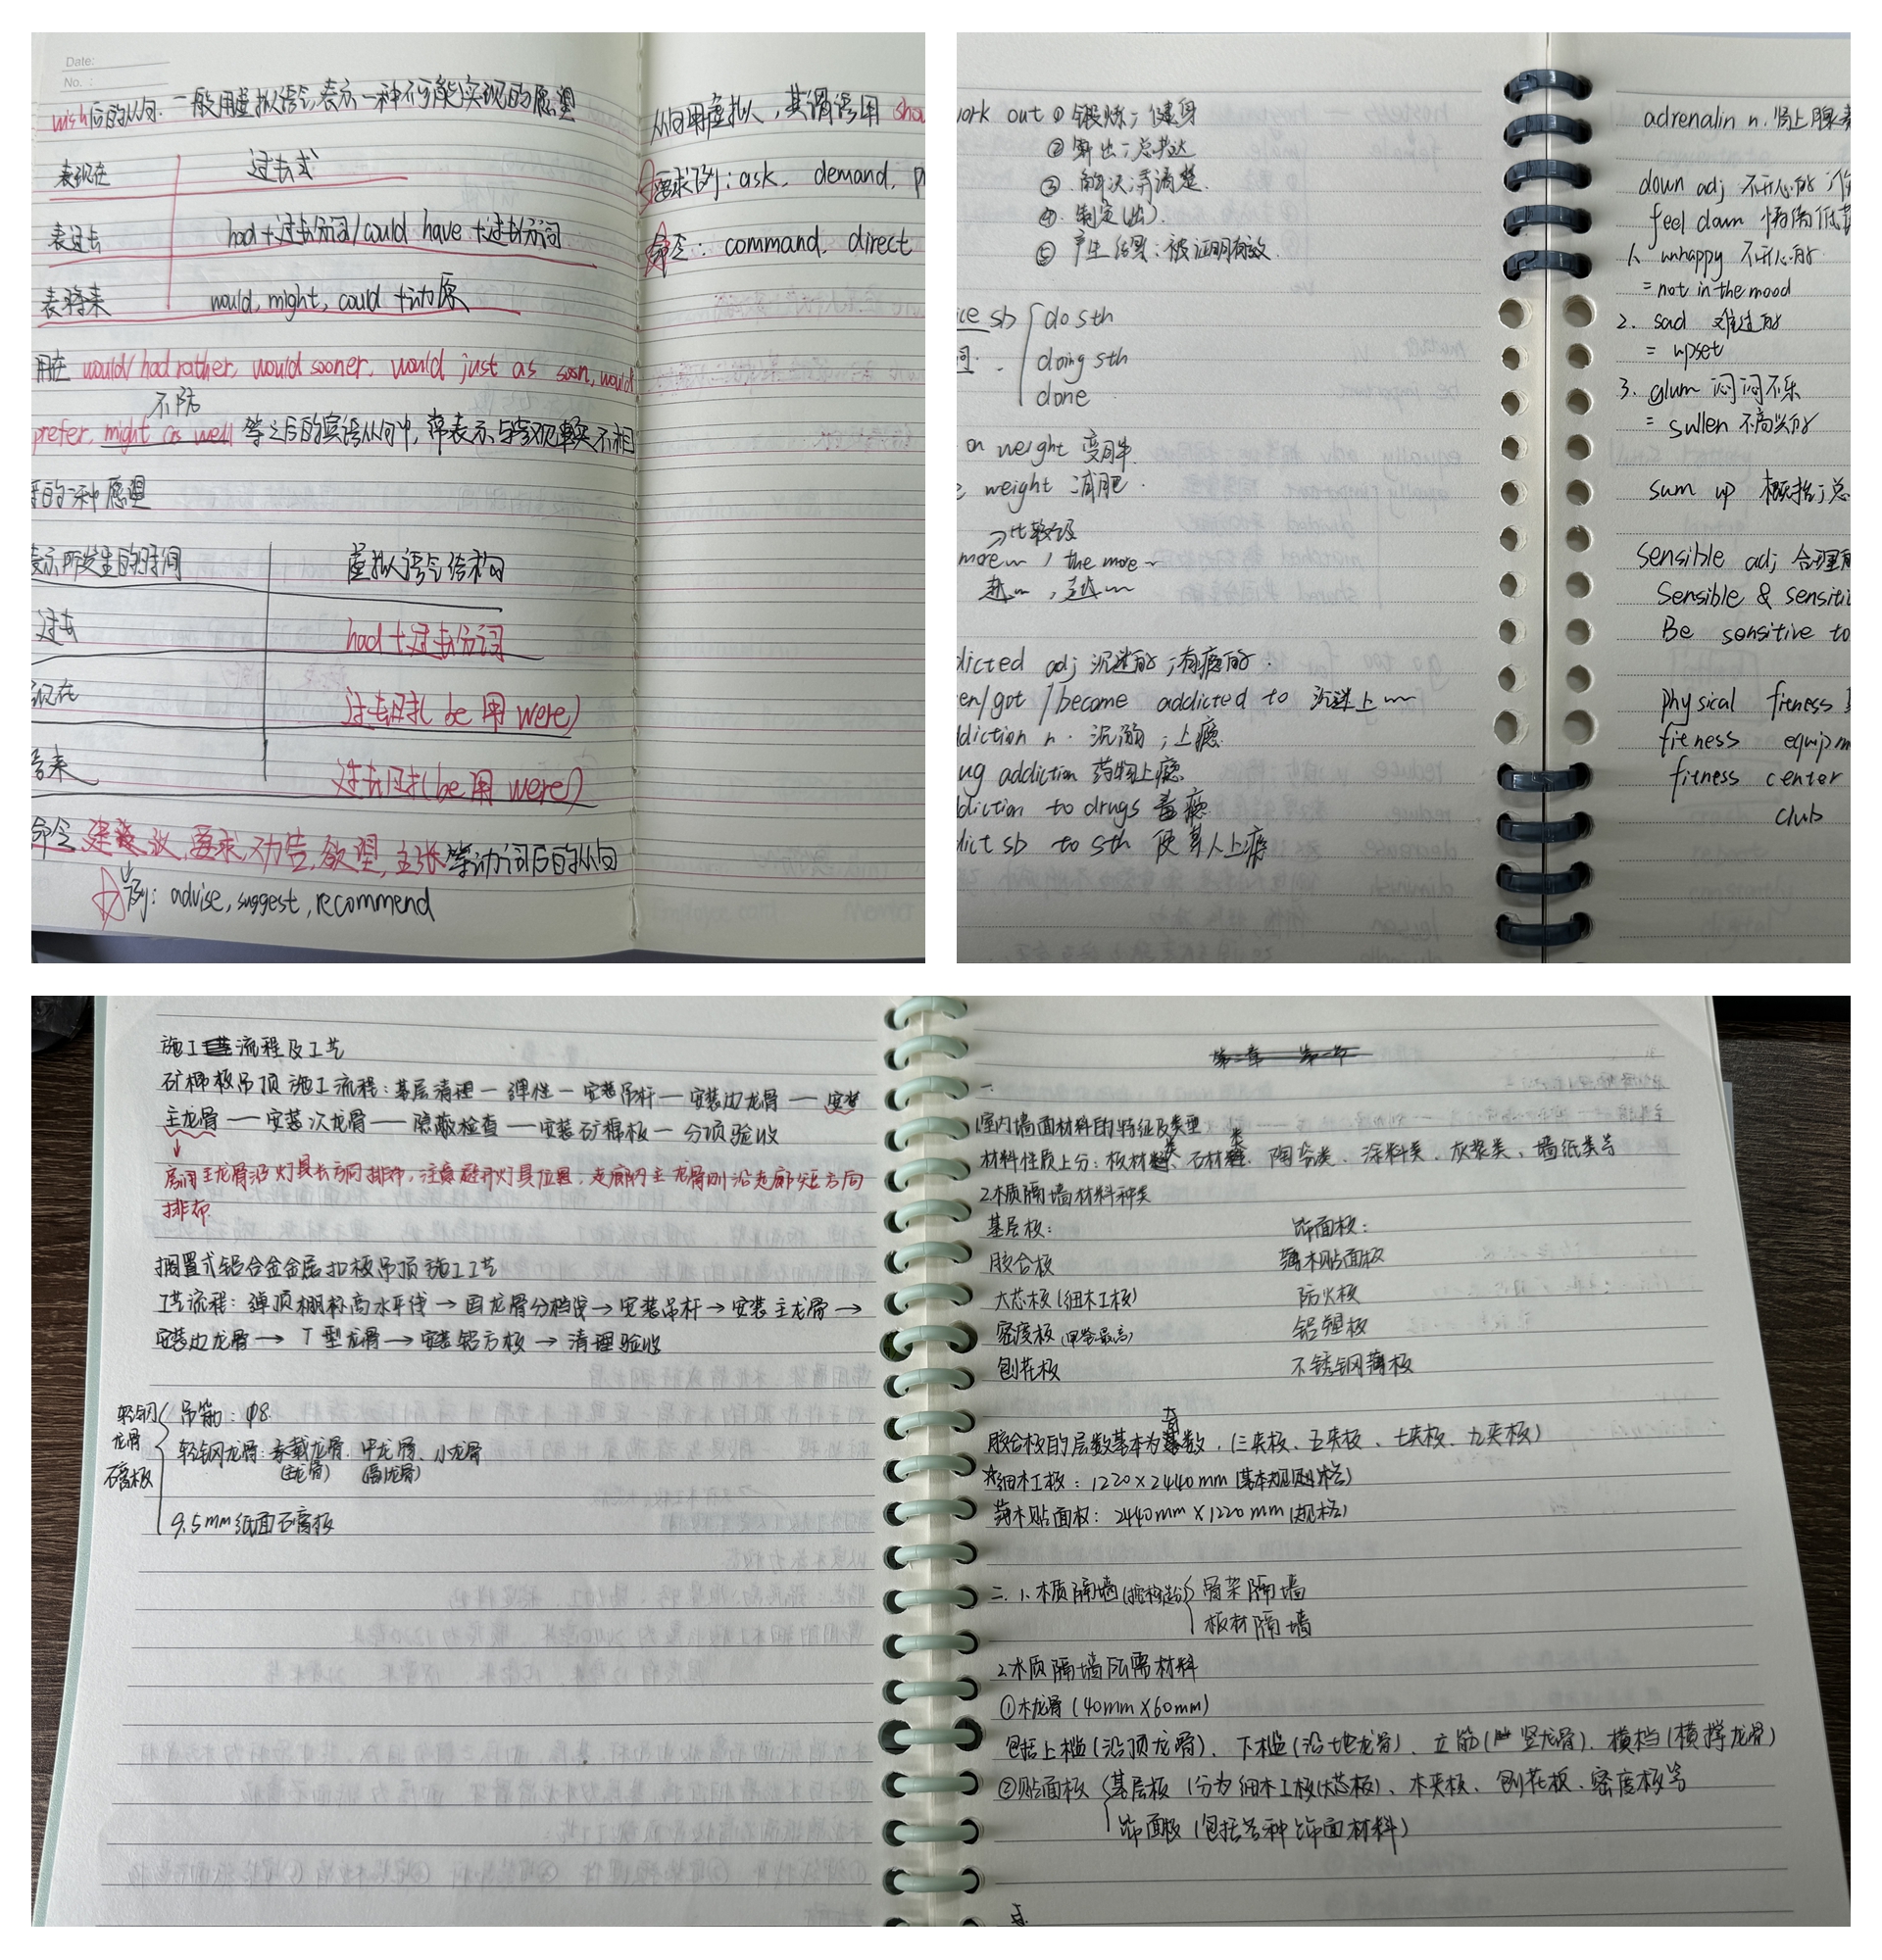 Date:
No. :
wish后的从句. 一般用虚拟语气,表示一种不可能实现的愿望
表现在 过去式
表过去 had+过去分词/could have +过去分词
表将来 would, might, could +动原
用在 would/had rather, would sooner, would just as soon, would
不防
prefer, might as well 等之后的宾语从句中, 常表示与客观事实不相
的一种愿望
表示所发生的时间 虚拟语气结构
过去 had+过去分词
现在 过去时( be 用 were)
将来 过去时( be 用 were)
命令 建议, 要求, 劝告, 欲望, 主张 等动词后的从句
例: advise, suggest, recommend
从句用虚拟, 其谓语用 shou
要求例: ask, demand, p
命令: command, direct
ork out ① 锻炼; 健身
② 算出; 总共达
③ 解决; 弄清楚.
④. 制定(出).
⑤ 产生结果; 被证明有效.
ice sb do sth
词. doing sth
done
on weight 变胖.
weight 减肥.
→比较级
more~ , the more~
越~ , 越~
dicted adj 沉迷的; 有瘾的.
en/got /become addicted to 沉迷上~
diction n. 沉溺; 上瘾.
ug addiction 药物上瘾
diction to drugs 毒瘾
dict sb to sth 使某人上瘾
adrenalin n. 肾上腺素
down adj 不开心的;
feel down 情绪低落
1. unhappy 不开心的.
= not in the mood
2. sad 难过的
= upset
3. glum 闷闷不乐
= sullen 不高兴的
sum up 概括; 总
sensible adj 合理的
Sensible & sensiti
Be sensitive to
physical fitness
fitness equipm
fitness center
club
施工 流程及工艺
矿棉板吊顶 施工流程: 基层清理 — 弹性 — 安装吊杆 — 安装边龙骨 — 安装
主龙骨 — 安装次龙骨 — 隐蔽检查 — 安装矿棉板 — 分项验收
房间主龙骨沿灯具长方向排布, 注意避开灯具位置, 走廊内主龙骨则沿走廊短方向
排布
搁置式铝合金金属扣板吊顶施工工艺
工艺流程: 弹顶棚标高水平线 → 画龙骨分档线 → 安装吊杆 → 安装主龙骨 →
安装边龙骨 → T型龙骨 → 安装铝方板 → 清理验收
轻钢龙骨石膏板
吊筋: φ8.
轻钢龙骨: 承载龙骨、中龙骨、小龙骨
(主龙骨) (副龙骨)
9.5mm纸面石膏板
第二章 第一节
一.
1.室内墙面材料的特征及类型
材料性质上分: 板材类、石材类、陶瓷类、涂料类、灰浆类、墙纸类等
2.木质隔墙材料种类
基层板: 饰面板:
胶合板 薄木贴面板
大芯板(细木工板) 防火板
密度板(甲醛最高) 铝塑板
刨花板 不锈钢薄板
胶合板的层数基本为奇数. (三夹板、五夹板、七夹板、九夹板)
☆细木工板: 1220×2440mm (基本规则规格)
薄木贴面板: 2440mm×1220mm (规格)
二. 1.木质隔墙(按构造分) 骨架隔墙
板材隔墙
2.木质隔墙所需材料
①木龙骨(40mm×60mm)
包括上槛(沿顶龙骨)、下槛(沿地龙骨)、立筋(竖龙骨)、横档(横撑龙骨)
②贴面板 基层板 (分为细木工板(大芯板)、木夹板、刨花板、密度板等
饰面板 (包括各种饰面材料)